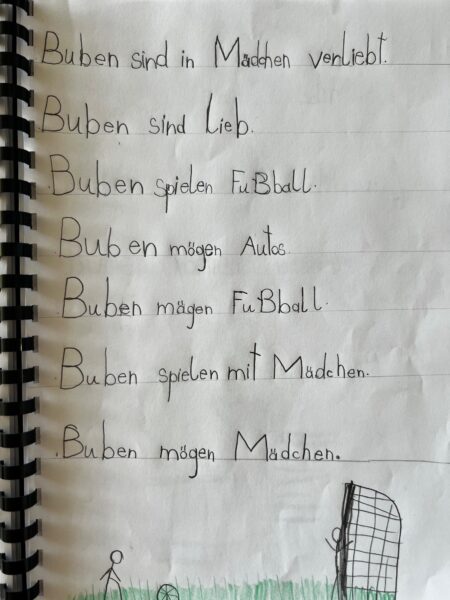 Buben sind in Mädchen verliebt.
Buben sind Lieb.
Buben spielen Fußball.
Buben mögen Autos.
Buben mägen Fußball.
Buben spielen mit Mädchen.
Buben mögen Mädchen.